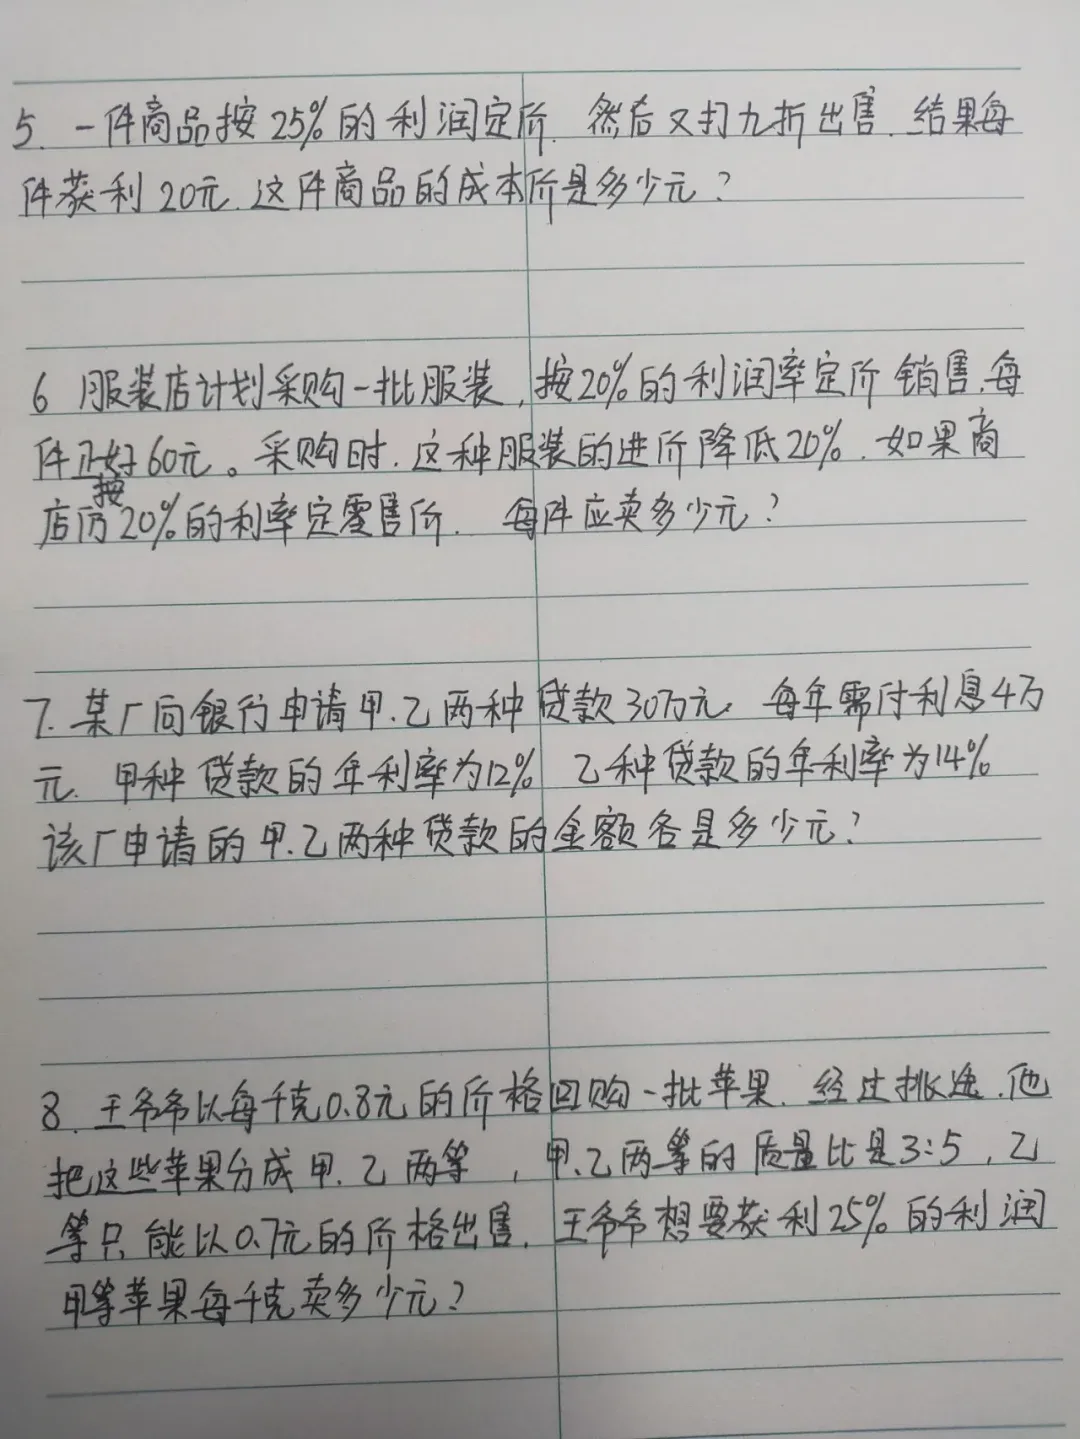 5. 一件商品按25%的利润定价.然后又打九折出售.结果每
件获利20元.这件商品的成本价是多少元?
6 服装店计划采购一批服装,按20%的利润率定价销售.每
件正好60元。采购时.这种服装的进价降低20%.如果商
按
店仍20%的利率定零售价. 每件应卖多少元?
7.某厂向银行申请甲.乙两种贷款30万元.每年需付利息4万
元.甲种贷款的年利率为12% 乙种贷款的年利率为14%
该厂申请的甲.乙两种贷款的金额各是多少元?
8.王爷爷以每千克0.8元的价格回购一批苹果.经过挑选.他
把这些苹果分成甲.乙两等,甲.乙两等的质量比是3:5,乙
等只能以0.7元的价格出售.王爷爷想要获利25%的利润
甲等苹果每千克卖多少元?